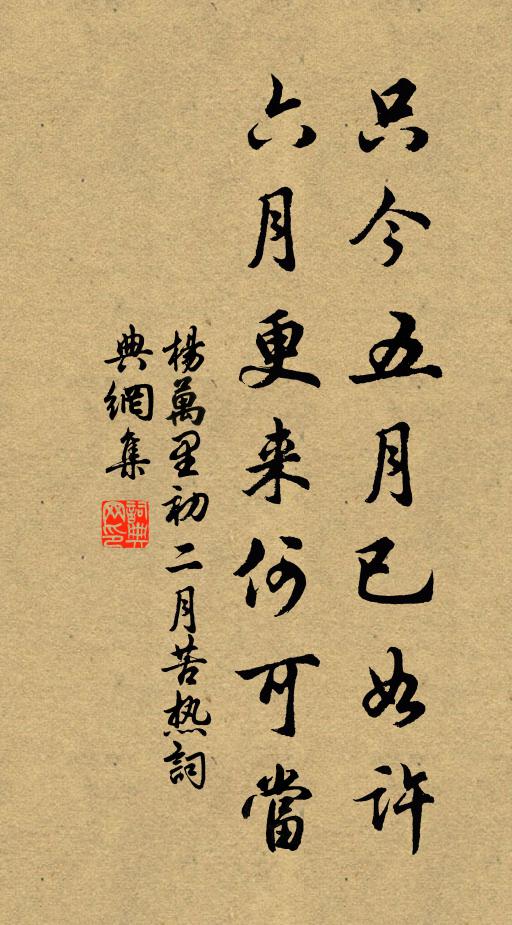 只今五月已如许
六月更来何可當
楊萬里初二月苦热詞
典網集
詞典網印